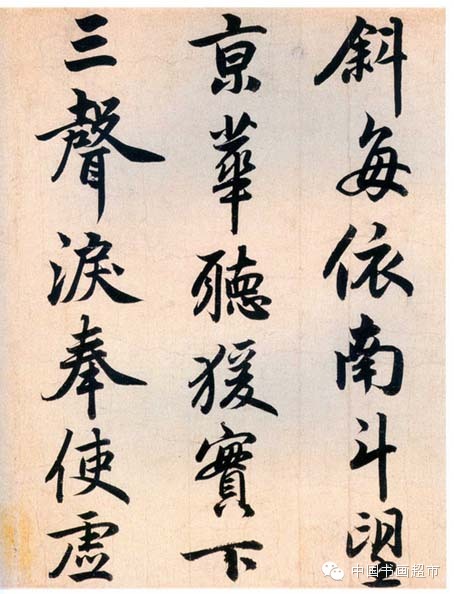 斜每依南斗望
京華聽猨實下
三聲淚奉使虛
中国书画超市